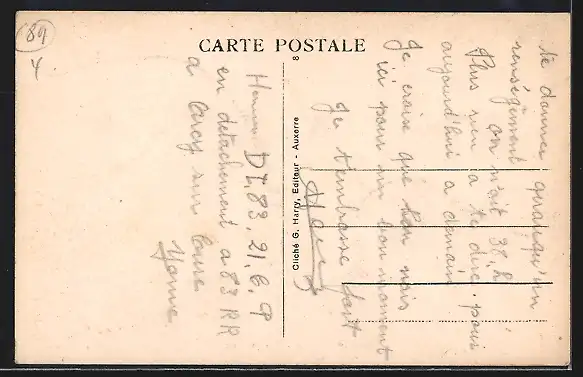 89
CARTE POSTALE
8
Cliché G. Harry, Editeur - Auxerre
te donner quelqu'un
renségiment
on n'ait 38.2
Plus rien a te dire pour
aujourd'hui a demain
Je crois que l'on nais
ici pour un bon moment
Je t'embrasse fort
en detachement a 83 RR
a Arcy sur Cure
Yonne